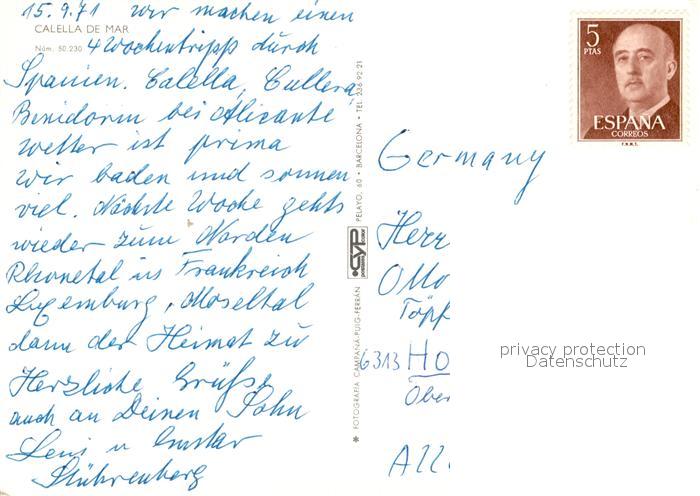 15.9.71 Wir machen einen
CALELLA DE MAR
Núm. 50.230
4 Wochentripp durch
Spanien. Calella, Cullera,
Benidorm bei Alicante
Wetter ist prima
Wir baden und sonnen
viel. Nächste Woche gehts
wieder zum Norden
Rhonetal in Frankreich
Luxemburg, Moseltal
dann der Heimat zu
Herzliche Grüße
auch an Deinen Sohn
Leni u Gustav
Stührenberg
✱ FOTOGRAFIA CAMPAÑA-PUIG-FERRÁN
CYP
PELAYO, 60 • BARCELONA • TEL. 236 92 21
5
PTAS
ESPAÑA
CORREOS
F.N.M.T.
Germany
Herr
Otto
Töpf
6313 Ho
Ober
All
privacy protection
Datenschutz